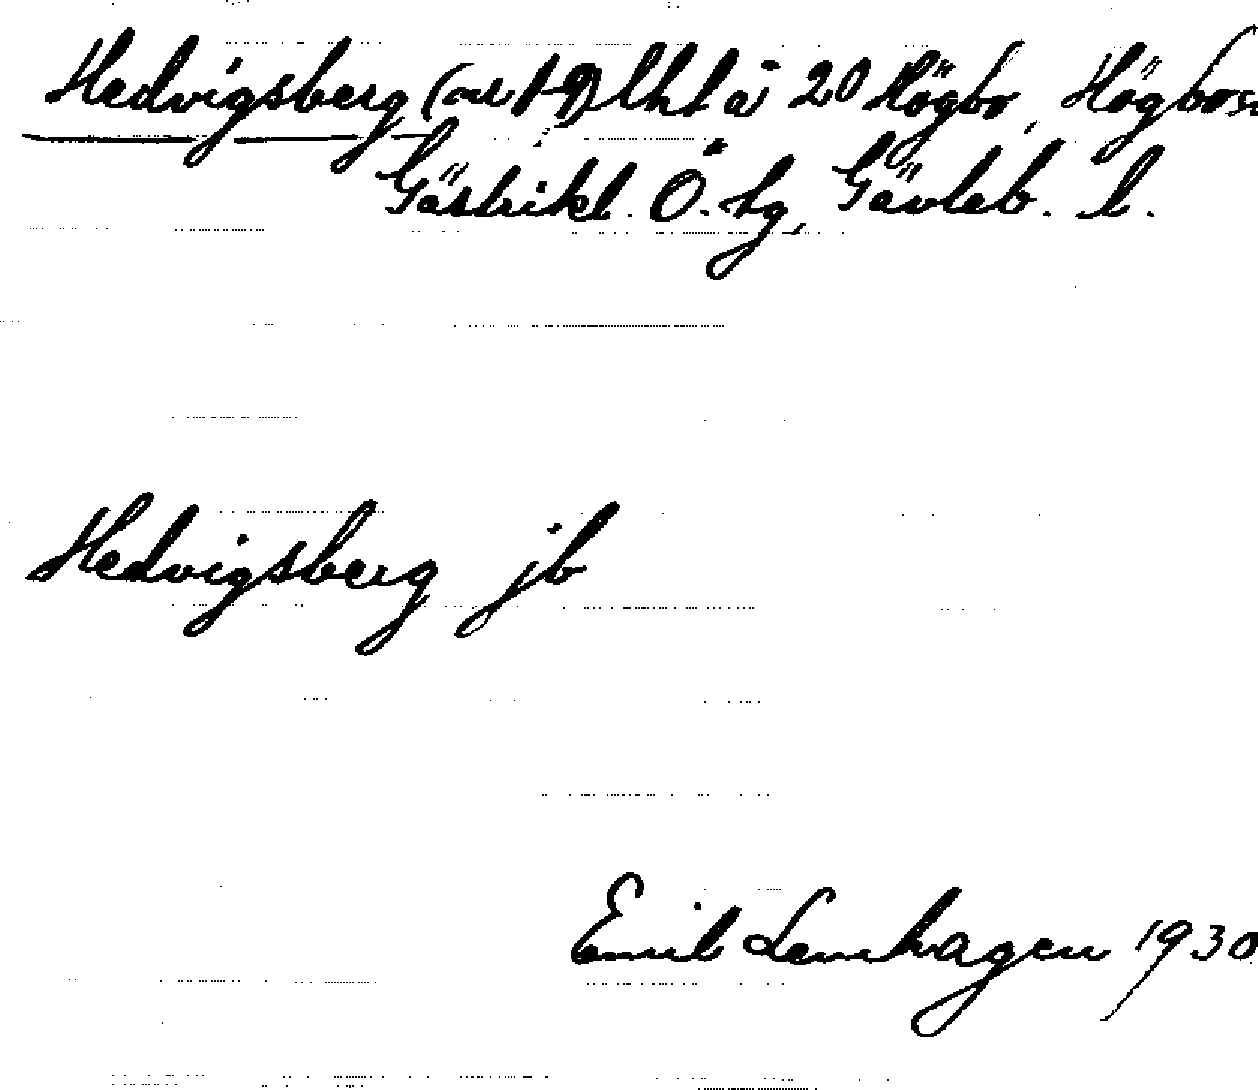 Hedvigsberg lht å 20 Högbo, Högbo
Gästrikl. Ö. tg, Gävleb. l.
Hedvigsberg jb
Emil Lennhagen 1930